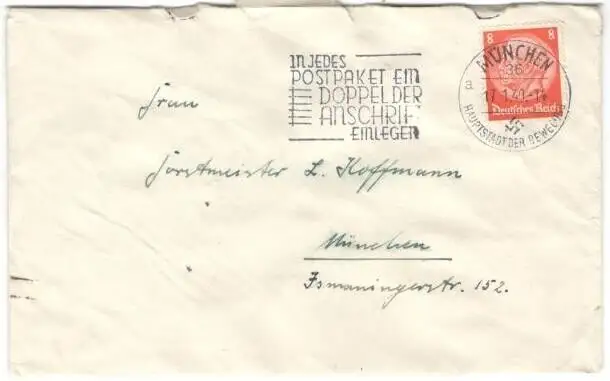 IN JEDES
POSTPAKET EIN
DOPPEL DER
ANSCHRIFT
EINLEGEN
8 8
MÜNCHEN
36
a
17.1.40
Deutsches Reich
HAUPTSTADT DER BEWEGUNG
Frau
Forstmeister L. Hoffmann
München
Ismaningerstr. 152.